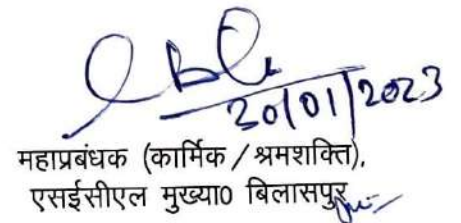 30/01/2023
महाप्रबंधक (कार्मिक / श्रमशक्ति),
एसईसीएल मुख्या0 बिलासपुर